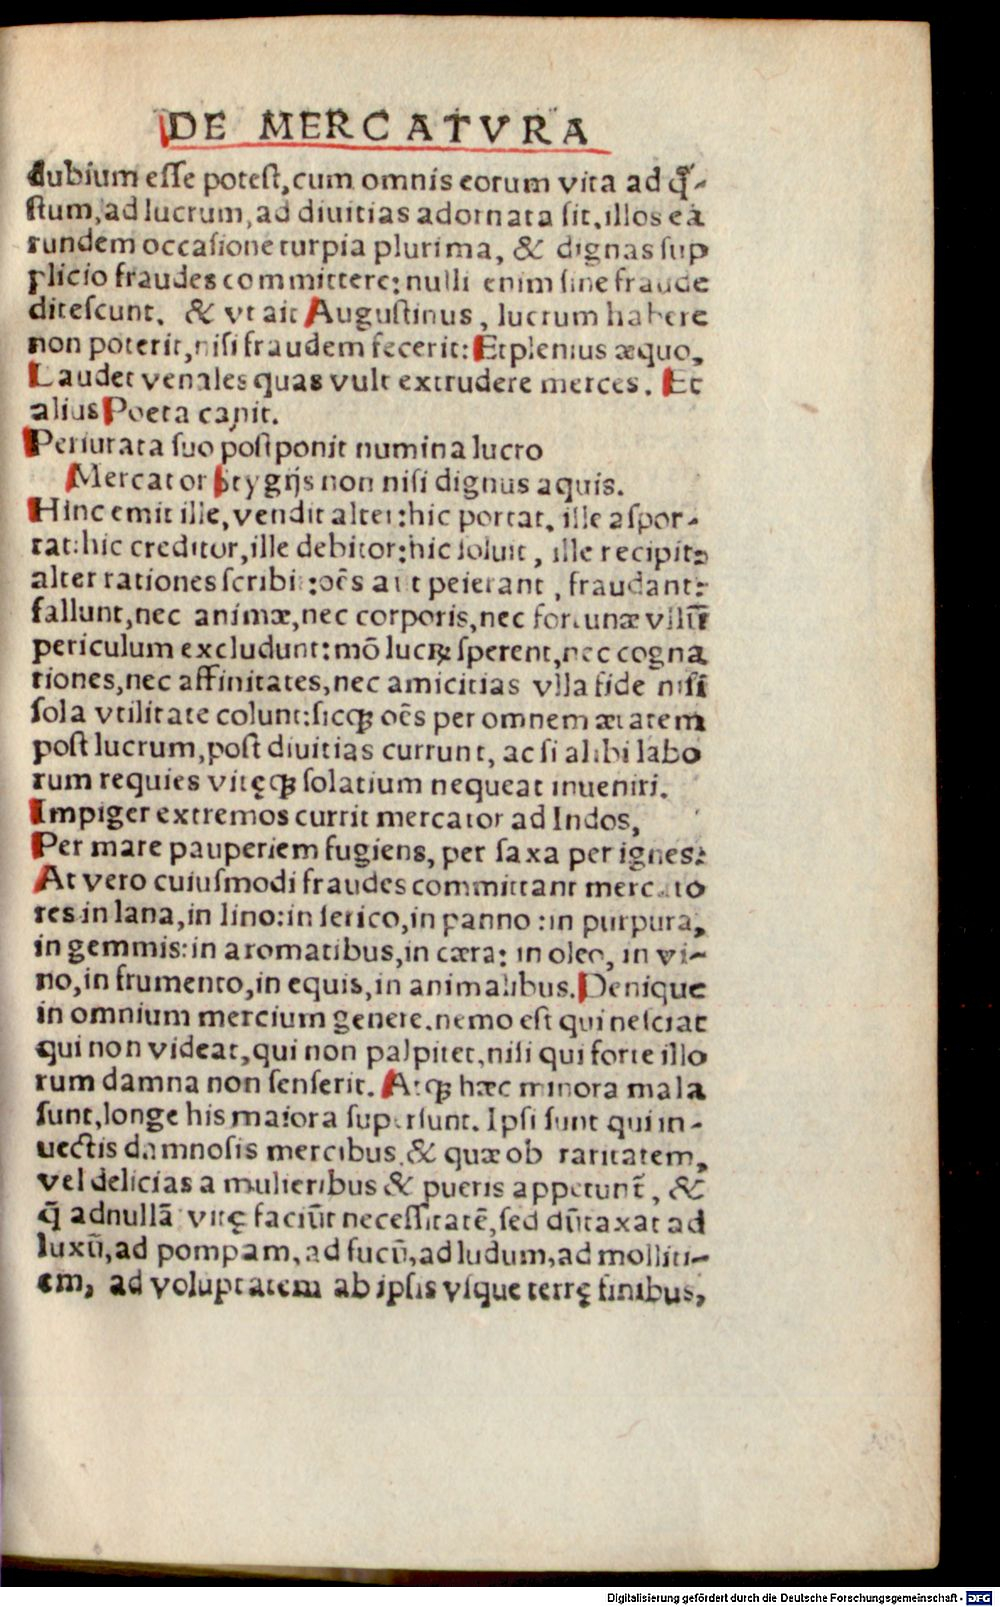 DE MERCATVRA
dubium esse potest,cum omnis eorum vita ad q̃-
stum,ad lucrum,ad diuitias adornata sit.illos ea
rundem occasione turpia plurima, & dignas sup
plicio fraudes committere:nulli enim sine fraude
ditescunt. & vt ait Augustinus, lucrum habere
non poterit,nisi fraudem fecerit: Et plenius æquo,
Laudet venales quas vult extrudere merces. Et
alius Poeta canit.
Periurata suo postponit numina lucro
Mercator Stygijs non nisi dignus aquis.
Hinc emit ille, vendit alter:hic portat, ille aspor-
tat:hic creditor,ille debitor:hic soluit, ille recipit:
alter rationes scribit:oēs aut peierant, fraudant:
fallunt,nec animæ,nec corporis,nec fortunæ vllū
periculum excludunt:mō lucrꝝ sperent,nec cogna
tiones,nec affinitates,nec amicitias vlla fide nisi
sola vtilitate colunt:sicqꝫ oēs per omnem ætatem
post lucrum,post diuitias currunt, ac si alibi labo
rum requies vitęqꝫ solatium nequeat inueniri.
Impiger extremos currit mercator ad Indos,
Per mare pauperiem fugiens, per saxa per ignes:
At vero cuiusmodi fraudes committant mercato
res in lana,in lino:in serico,in panno:in purpura,
in gemmis:in aromatibus,in cæra: in oleo, in vi-
no,in frumento,in equis,in animalibus.Denique
in omnium mercium genere.nemo est qui nesciat
qui non videat,qui non palpitet,nisi qui forte illo
rum damna non senserit. Atqꝫ hæc minora mala
sunt,longe his maiora supersunt. Ipsi sunt qui in-
uectis damnosis mercibus,& quæ ob raritatem,
vel delicias a mulieribus & pueris appetunt̄, &
q̄ adnullā vitę faciūt necessitatē,sed dūtaxat ad
luxū,ad pompam,ad fucū,ad ludum,ad molliti-
em, ad voluptatem ab ipsis vsque terrę finibus,
Digitalisierung gefördert durch die Deutsche Forschungsgemeinschaft - DFG